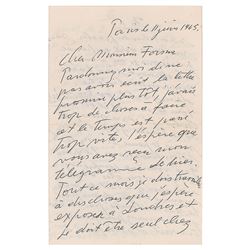 Paris le 11 juin 1965.
Cher Monsieur
Pardonnez moi de ne
pas avoir écrit la lettre
promise plus tôt j'avais
trop de choses à faire
et le temps est passé
trop vite, j'espère que
vous avez reçu mon
télégramme de hier.
Tout ce mois je dois travailler
à des choses que j'espère
exposer à Londres et
je dois être seul chez